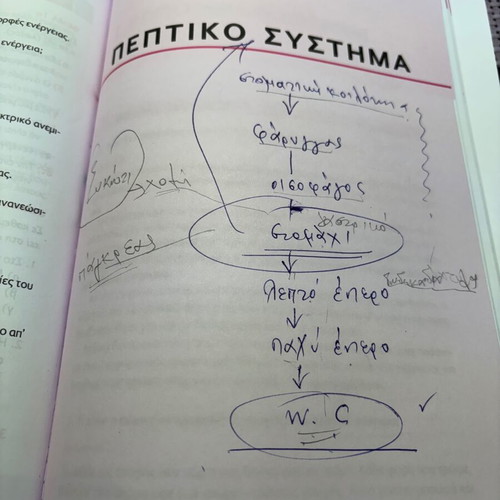 ρφές ενέργειας.
ενέργεια;
κτρικό ανεμι-
ας.
νανεώσι-
ίες του
ο απ'
ΠΕΠΤΙΚΟ ΣΥΣΤΗΜΑ
στοματική κοιλότητα
φάρυγγας
οισοφάγος
Συκώτι → χολή
γαστρικό
στομάχι
πάγκρεας
λεπτό έντερο
παχύ έντερο
W.C